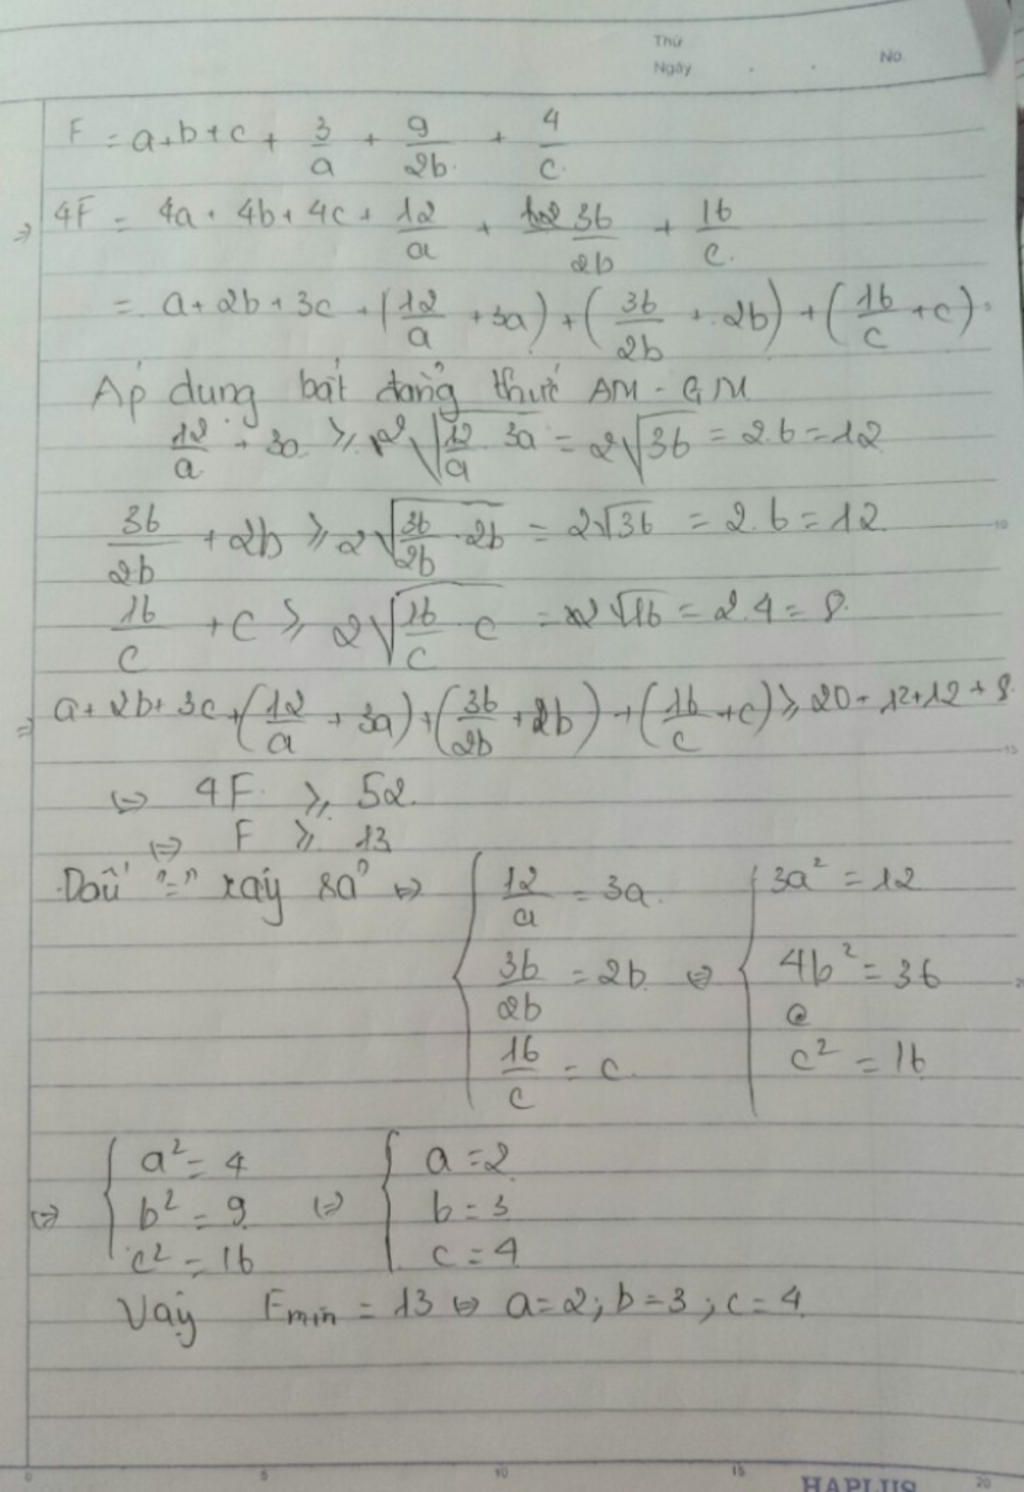 Thứ
Ngày . . No.
F = a+b+c + 3/a + 9/2b + 4/c
⇒ 4F = 4a + 4b + 4c + 12/a + 36/2b + 16/c
= a + 2b + 3c + (12/a + 3a) + (36/2b + 2b) + (16/c + c)
Áp dụng bất đẳng thức AM - GM
12/a + 3a ≥ 2√(12/a . 3a) = 2√36 = 2.6 = 12
36/2b + 2b ≥ 2√(36/2b . 2b) = 2√36 = 2.6 = 12
16/c + c ≥ 2√(16/c . c) = 2√16 = 2.4 = 8
⇒ a + 2b + 3c + (12/a + 3a) + (36/2b + 2b) + (16/c + c) ≥ 20 + 12 + 12 + 8
⇔ 4F ≥ 52
⇔ F ≥ 13
Dấu "=" xảy ra ⇔ { 12/a = 3a ; 36/2b = 2b ; 16/c = c ⇔ { 3a² = 12 ; 4b² = 36 ; c² = 16
⇔ { a² = 4 ; b² = 9 ; c² = 16 ⇔ { a = 2 ; b = 3 ; c = 4
Vậy Fmin = 13 ⇔ a = 2; b = 3; c = 4
0 5 10 15 20
HAPLUS